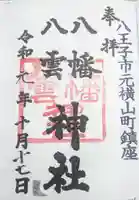 奉拝
八王子市元横山町鎮座
八幡
八雲
神社
令和元年十月十七日